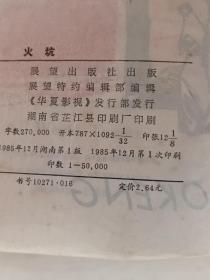 火坑
展望出版社出版
展望特约编辑部编辑
《华夏影视》发行部发行
湖南省芷江县印刷厂印刷
字数270,000 开本787×1092 1/32 印张12 1/8
1985年12月湖南第1版 1985年12月第1次印刷
印数 1—50,000
书号10271·016 定价2.64元
OKENG